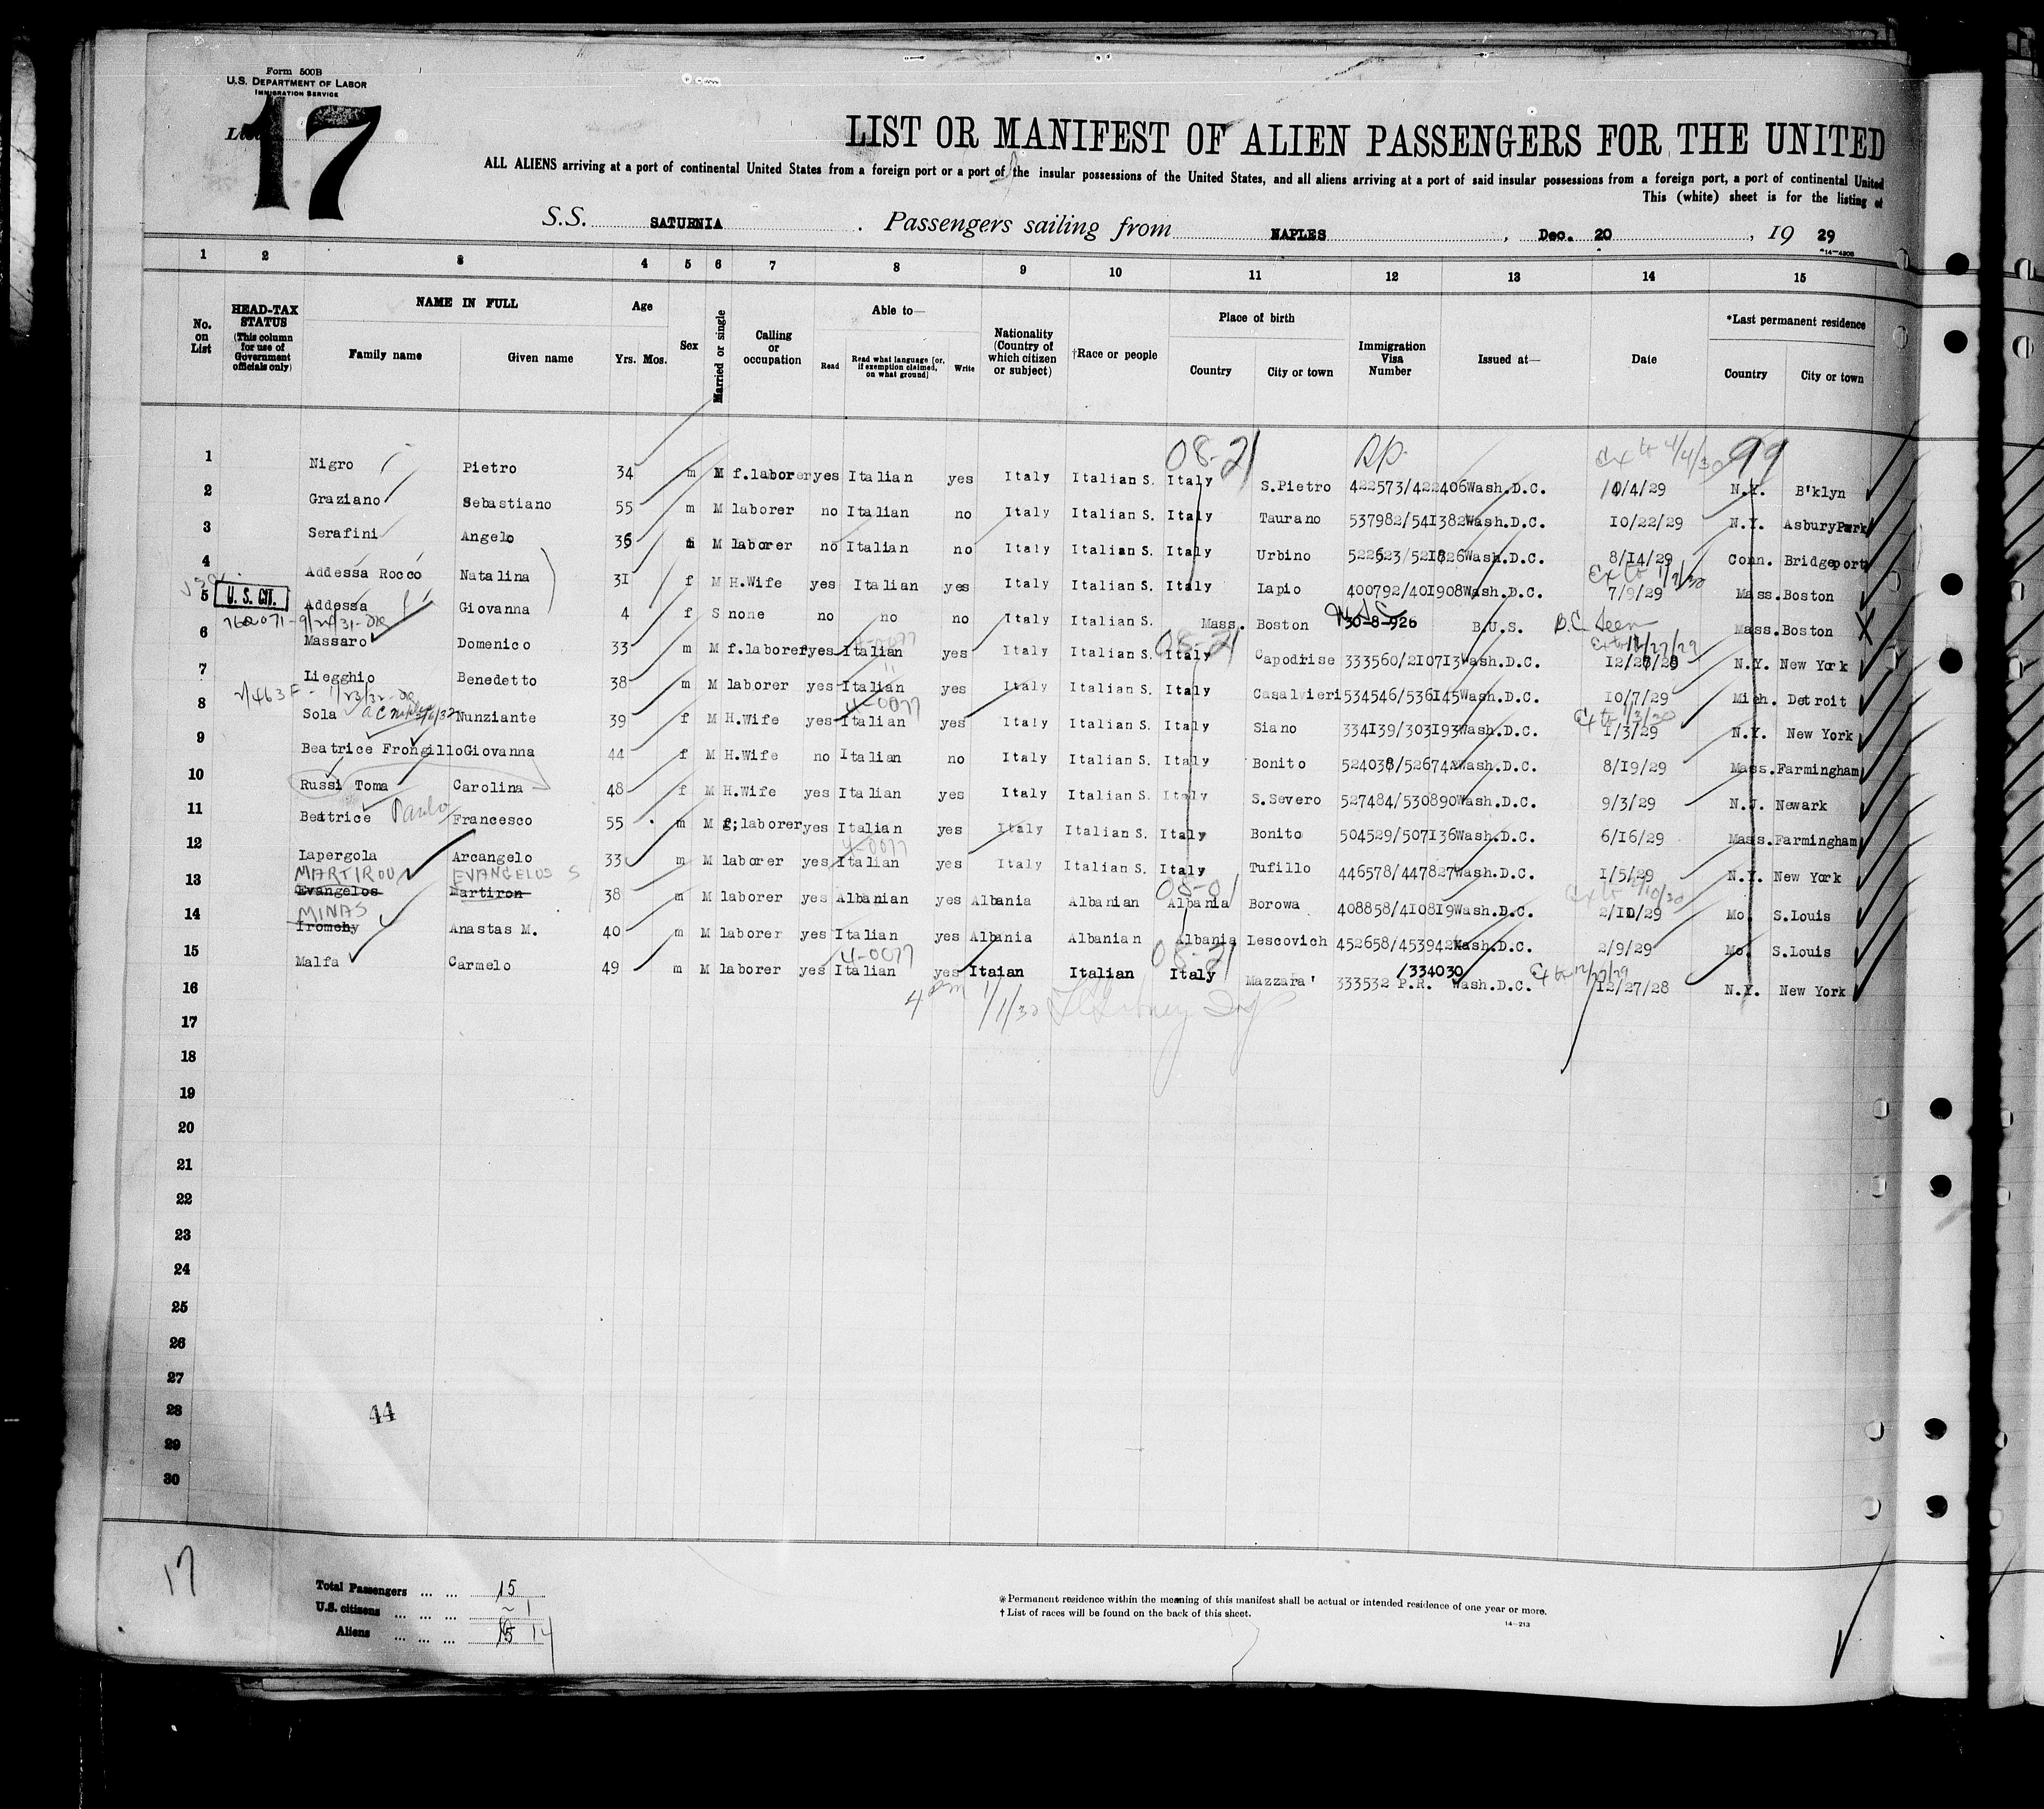 Form 500B
U.S. DEPARTMENT OF LABOR
IMMIGRATION SERVICE
List 17
LIST OR MANIFEST OF ALIEN PASSENGERS FOR THE UNITED
ALL ALIENS arriving at a port of continental United States from a foreign port or a port of the insular possessions of the United States, and all aliens arriving at a port of said insular possessions from a foreign port, a port of continental United
This (white) sheet is for the listing of
S.S. SATURNIA. Passengers sailing from NAPLES, Dec. 20, 19 29
14—4208
1 2 3 4 5 6 7 8 9 10 11 12 13 14 15
No. on List
HEAD-TAX STATUS (This column for use of Government officials only)
NAME IN FULL
Family name Given name
Age
Yrs. Mos.
Sex
Married or single
Calling or occupation
Able to—
Read
Read what language [or, if exemption claimed, on what ground]
Write
Nationality (Country of which citizen or subject)
†Race or people
Place of birth
Country City or town
Immigration Visa Number
Issued at—
Date
*Last permanent residence
Country City or town
08-21 99
Ext to 4/4/30
1 Nigro Pietro 34 m M f.laborer yes Italian yes Italy Italian S. Italy S.Pietro 422573/422406 Wash.D.C. 10/4/29 N.Y. B'klyn
2 Graziano Sebastiano 55 m M laborer no Italian no Italy Italian S. Italy Taurano 537982/541382 Wash.D.C. 10/22/29 N.Y. AsburyPark
3 Serafini Angelo 36 m M laborer no Italian no Italy Italian S. Italy Urbino 522623/521826 Wash.D.C. 8/14/29 Conn. Bridgeport
Ext to 1/9/30
4 Addessa Rocco Natalina 31 f M H.Wife yes Italian yes Italy Italian S. Italy Lapio 400792/401908 Wash.D.C. 7/9/29 Mass. Boston
5 U.S. CIT. Addessa Giovanna 4 f S none no no no Italy Italian S. Mass. Boston 30-8-926 B.U.S. B.C. Seen Mass. Boston
08-21 Ext to 12/27/29
6 Massaro Domenico 33 m M f.laborer yes Italian yes Italy Italian S. Italy Capodrise 333560/210713 Wash.D.C. 12/27/28 N.Y. New York
7 Liegghio Benedetto 38 m M laborer yes Italian yes Italy Italian S. Italy Casalvieri 534546/536145 Wash.D.C. 10/7/29 Mich. Detroit
4-0077
8 Sola Nunziante 39 f M H.Wife yes Italian yes Italy Italian S. Italy Siano 334139/303193 Wash.D.C. 1/3/29 N.Y. New York
9 Beatrice Frongillo Giovanna 44 f M H.Wife no Italian no Italy Italian S. Italy Bonito 524038/526742 Wash.D.C. 8/19/29 Mass. Farmingham
10 Russi Toma Carolina 48 f M H.Wife yes Italian yes Italy Italian S. Italy S.Severo 527484/530890 Wash.D.C. 9/3/29 N.J. Newark
11 Beatrice Francesco 55 m M f;laborer yes Italian yes Italy Italian S. Italy Bonito 504529/507136 Wash.D.C. 6/16/29 Mass. Farmingham
4-0077
12 Lapergola Arcangelo 33 m M laborer yes Italian yes Italy Italian S. Italy Tufillo 446578/447827 Wash.D.C. 1/5/29 N.Y. New York
MARTIROU EVANGELOS
13 Evangelos Martiron 38 m M laborer yes Albanian yes Albania Albanian Albania Borowa 408858/410819 Wash.D.C. 2/10/29 Mo. S.Louis
MINAS
14 Tromchy Anastas M. 40 m M laborer yes Italian yes Albania Albanian Albania Lescovich 452658/453942 Wash.D.C. 2/9/29 Mo. S.Louis
4-0077 08-21
15 Malfa Carmelo 49 m M laborer yes Italian yes Itaian Italian Italy Mazzara' 333532 P.R. /334030 Wash.D.C. Ext to 12/27/29 12/27/28 N.Y. New York
16 4 pm 1/1/30
17
18
19
20
21
22
23
24
25
26
27
28 44
29
30
17
Total Passengers ... ... 15
U.S. citizens ... ... ... 1
Aliens ... ... ... 15 14
*Permanent residence within the meaning of this manifest shall be actual or intended residence of one year or more.
†List of races will be found on the back of this sheet.
14—213